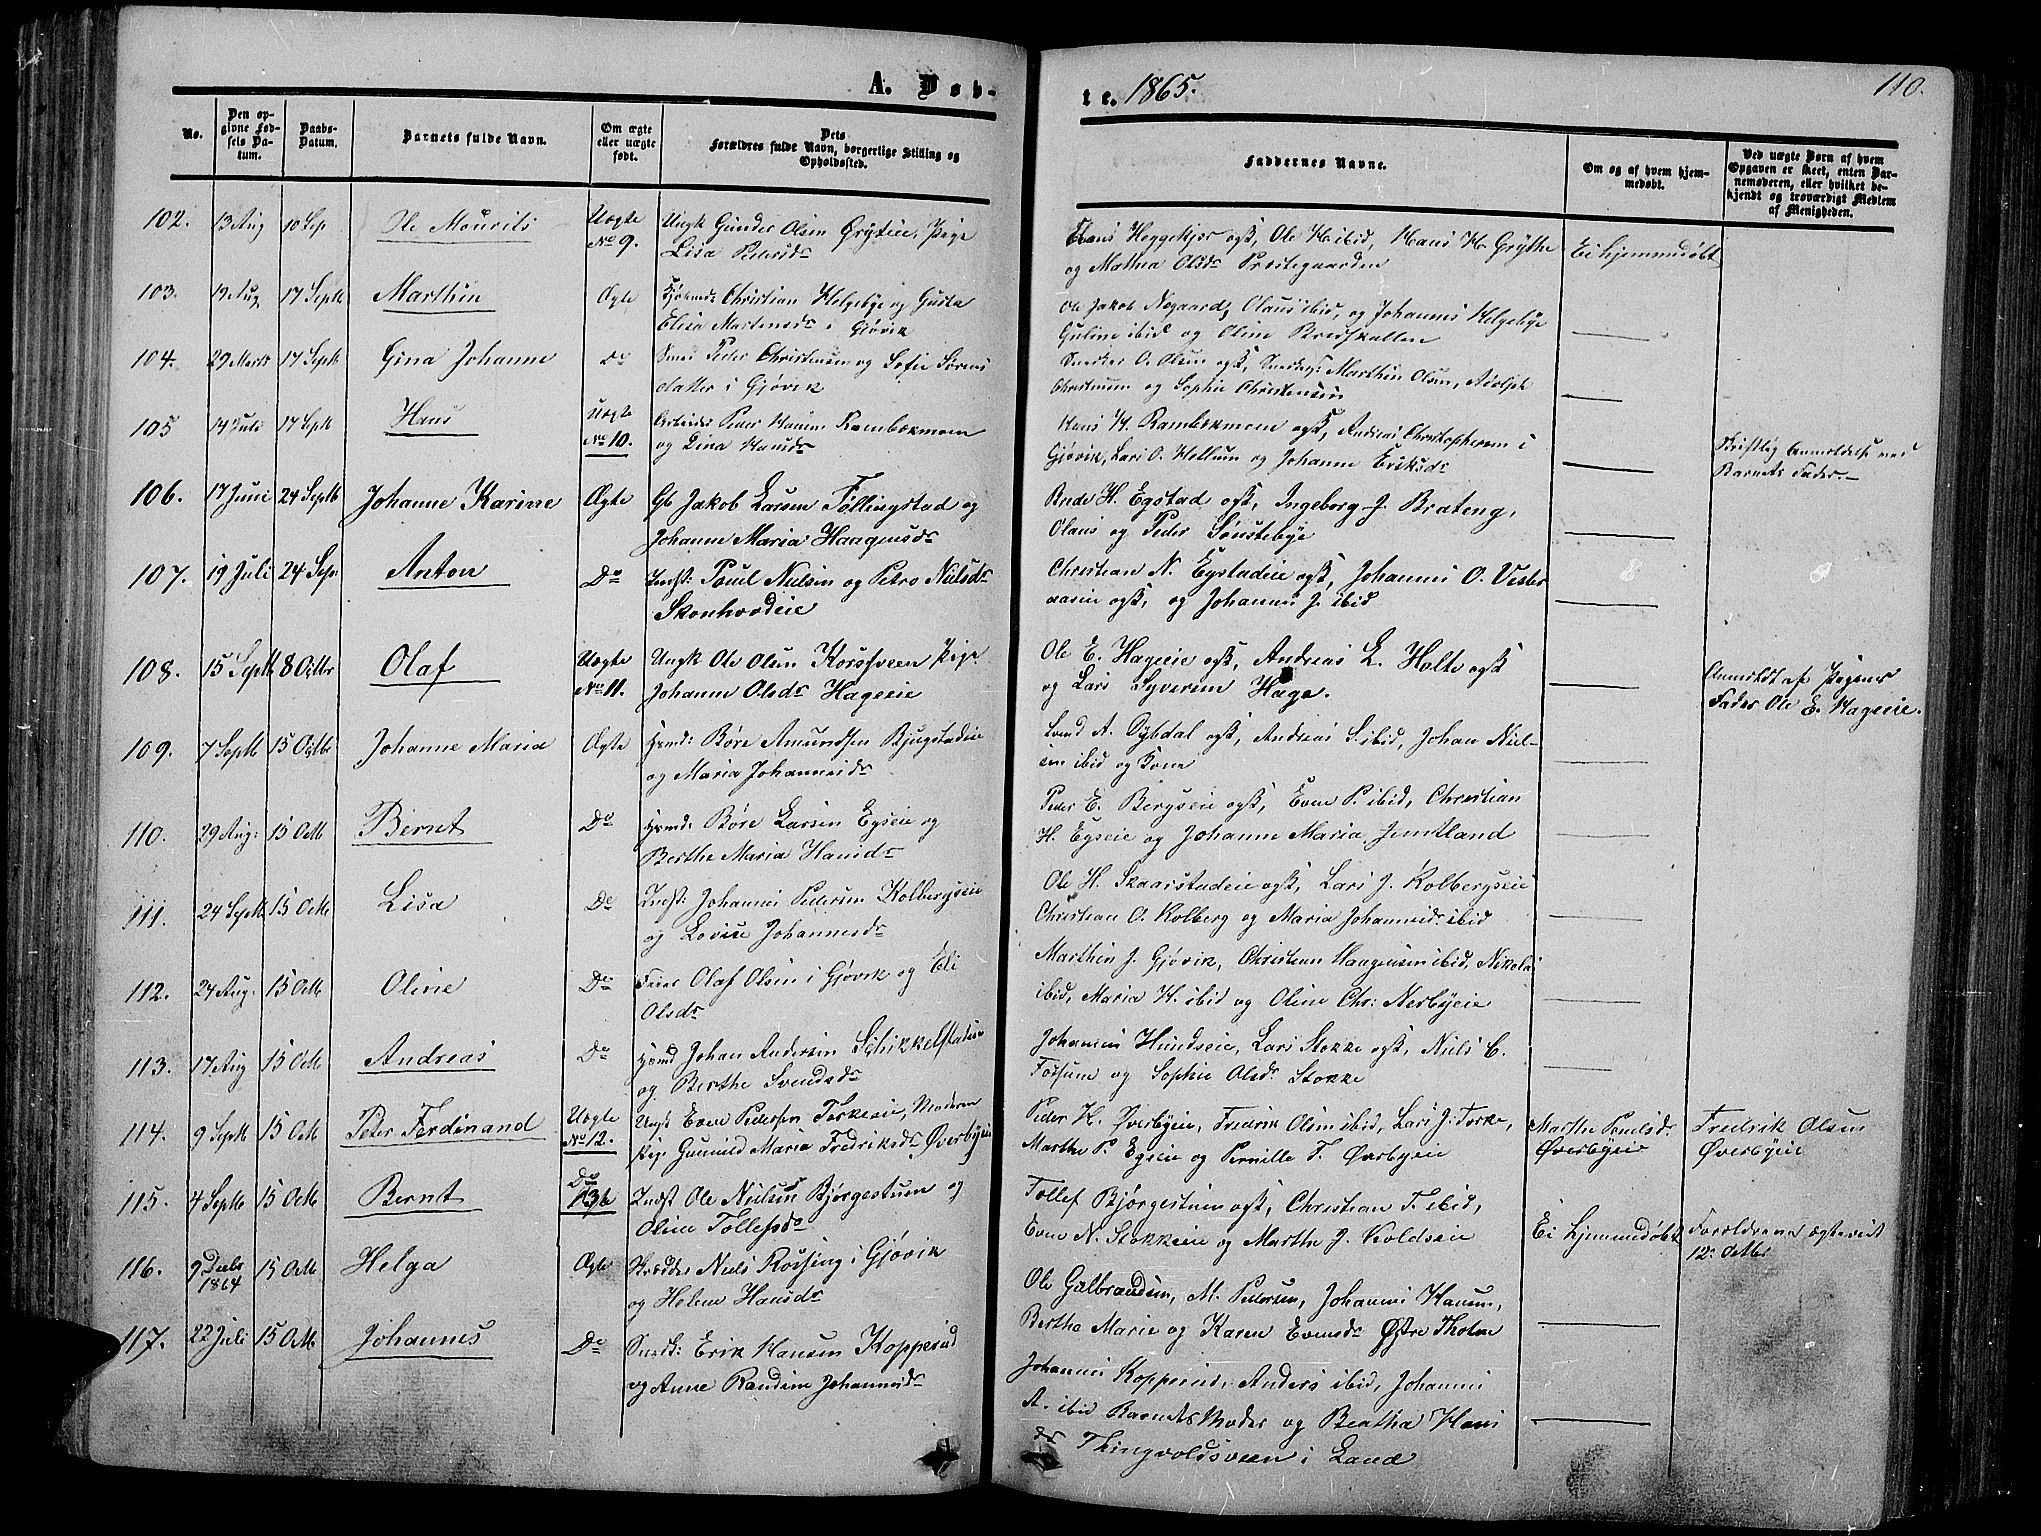 A. Døb-
te. 1865.
110.
No.
Den op-
givne Fød-
sels Da-
tum.
Daabs-
Datum.
Barnets fulde Navn.
Om ægte
eller uægte
født.
Dets
Forældres fulde Navn, borgerlige Stilling og
Opholdssted.
Faddernes Navne.
Om og af hvem hjem-
medøbt.
Ved uægte Børn af hvem
Opgaven er skeet, enten Bar-
nemoderen, eller hvilket be-
kjendt og troværdigt Medlem
af Menigheden.
102. 13 Aug 10 Sep Ole Mourits Uægte Ungk Gunder Olsen Pige
No 9. Lisa Pedersdr
Hans Heggekjær ogsk, Ole H. ibid, Hans H. Grythe Ei hjemmedøbt
og Mathea Olsdr Præstegaarden
103. 19 Aug 17 Septb Marthin Ægte Christian Helgebye og Gusta
Elisa Martensdr i Gjøvik
Ole Jakob Nøgaard, Olaus ibid, og Johannes Helgebye
Guline ibid og Oline Bredskallen
104. 29 Marts 17 Septb Gina Johanne Do Smed Peder Christensen og Sofie Sørens
datter i Gjøvik
Snedker O. Olsen ogsk, Marthin Olsen, Adolph
Christensen og Sophie Christensen
105 14 Juli 17 Septb Hans Uægte Arbeider Peder Hansen Rambekmoen
No 10. og Lina Hansdr
Hans H. Rambekmoen ogsk, Andreas Christophersen i
Gjøvik, Lars O. Hellum og Johanne Eriksdr
Skriftlig Anmeldelse ved
Barnets Fader.—
106. 17 Juni 24 Septb Johanne Karine Ægte Gb Jakob Larsen Føllingstad og
Johanne Maria Haagensdr
H. Egstad ogsk, Ingeborg J. Brateng,
Olaus og Peder Sønstebye
107. 19 Juli 24 Sep: Anton Do Indst: Poul Nielsen og Petra Nielsdr
Skonhovdeie
Christian N. Eystadeie ogsk, Johannes O. Vester
aaseie ogsk, og Johannes J. ibid
108. 15 Septb 8 Octbr Olaf Uægte Ungk Ole Olsen Korssveen Pige
No 11. Johanne Olsdr Hageeie
Ole E. Hageeie ogsk, Andreas L. Holte ogsk
og Lars Syversen Hage.
Anmeldt af Pigens
Fader Ole E. Hageeie.
109. 7 Septb 15 Octbr Johanne Maria Ægte Hsmd: Børe Amundsen Bjugstadeie
og Maria Johannesdr
A. Dybdal ogsk, Andreas S. ibid, Johan Niel-
sen ibid og Kone
110. 29 Aug: 15 Octb Bernt Do Hsmd: Børe Larsen Egseie og
Berthe Maria Hansdr
Peder E. Bergseie ogsk, Even P. ibid, Christian
H. Egseie og Johanne Maria Jemtland
111. 24 Septb 15 Octb Lisa Do Indst: Johannes Pedersen Kolbergseie
og Lovise Johannesdr
Ole H. Skaarstadeie ogsk, Lars J. Kolbergseie
Christian O. Kolberg og Maria Johannesdr ibid
112. 24 Aug. 15 Octb Oline Do Feier Olaf Olsen i Gjøvik og Eli
Olsdr
Marthin J. Gjøvik, Christian Haagensen ibid, Nikolai
ibid, Maria H. ibid og Oline Chr: Nerbyeie
113. 17 Aug 15 Octb Andreas Do Hsmd Johan Andersen Schikkelstadeie
og Berthe Svendsdr
Johannes Hundseie, Lars Stokke ogsk, Niels C.
Fossum og Sophie Olsdr Stokke
114. 9 Septb 15 Octb Peter Ferdinand Uægte Ungk Even Pedersen Torkeeie, Moderen
No 12. Pige Gunnild Maria Fredriksdr Øverbyeie
Peder H. Øverbyeie, Fredrik Olsen ibid, Lars J. Torke,
Marthe P. Egseie og Pernille F. Øverbyeie
Marthe Poulsdr
Øverbyeie
Fredrik Olsen
Øverbyeie
115. 4 Septb 15 Octb Bernt Do Indst Ole Nielsen Bjørgestuen og
Oline Tollefsdr
Tollef Bjørgestuen ogsk, Christian T. ibid,
Even N. Stokkeeie og Marthe J. Koldseie
Ei hjemmedøbt
Forældrene ægteviet
12. Octbr
116. 9 Decbr 15 Octb Helga Ægte Skrædder Niels Røssing i Gjøvik
1864
og Helene Hansdr
Ole Gulbrandsen, M. Pedersen, Johannes Hansen,
Bertha Marie og Karen Evensdr Østre Thoten
117. 22 Juli 15 Octb Johannes Do Erik Hansen Kopperud
og Anne Randine Johannesdr
Johannes Kopperud, Anders ibid, Johannes
A. ibid Barnets Moder og Beatha Hans
dr Thingvoldsveen i Land